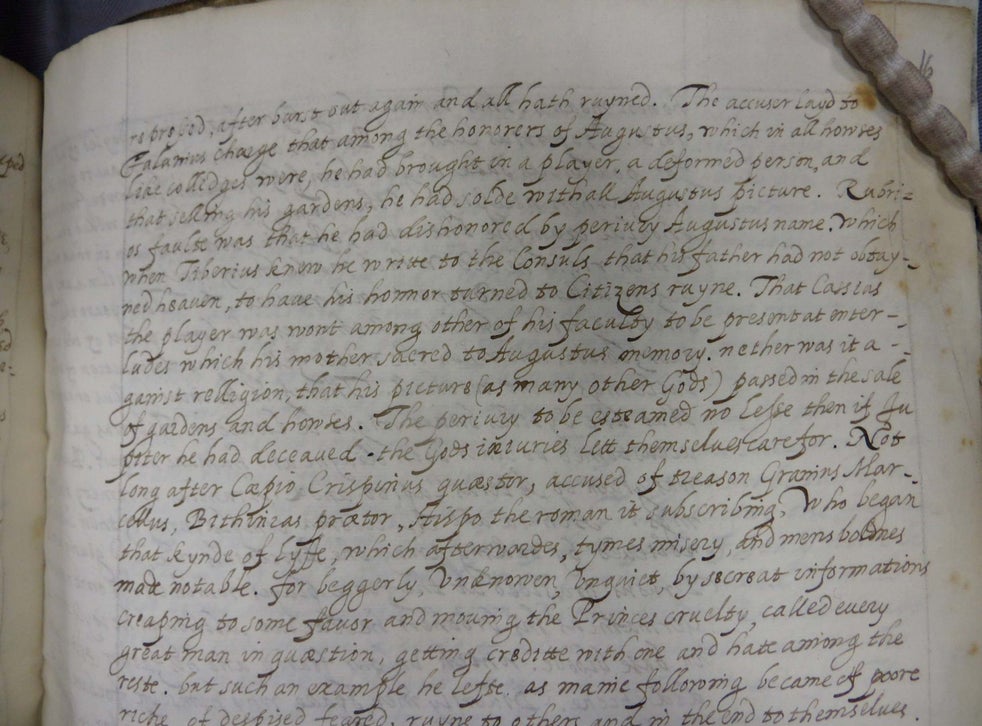 16
repressed, after burst out again and all hath ruyned. The accuser layd to
Falanius charge that among the honorers of Augustus, which in all howses
like colledges were, he had brought in a player, a deformed person, and
that selling his gardens, he had solde withall Augustus picture. Rubri=
os faulte was that he had dishonored by periury Augustus name. Which
when Tiberius knew he write to the Consuls that his father had not obtay-
ned heaven, to haue his honnor turned to Citizens ruyne. That Cassius
the player was wont among other of his faculty to be present at enter-
ludes which his mother sacred to Augustus memory. nether was it a-
gainst relligion, that his picture (as many other Gods) passed in the sale
of gardens and howses. The periury to be esteamed no lesse then if Ju
piter he had deceaued. the Gods iniuries lett themselues care for. Not
long after Cæpio Crispinus quæstor, accused of treason Granius Mar-
cellus, Bithinias prætor, Hispo the roman it subscribing, Who began
that kynde of lyffe, which afterwardes, tymes misery, and mens boldnes
made notable. for beggerly, Vnknowen, Vnquiet, by secreat informations
creaping to some favor and mouing the Princes cruelty, called every
great man in quæstion, getting creditte with one and hate among the
reste. but such an example he lefte. as manie following became of poore
riche, of despised feared, ruyne to others and in the end to themselues.